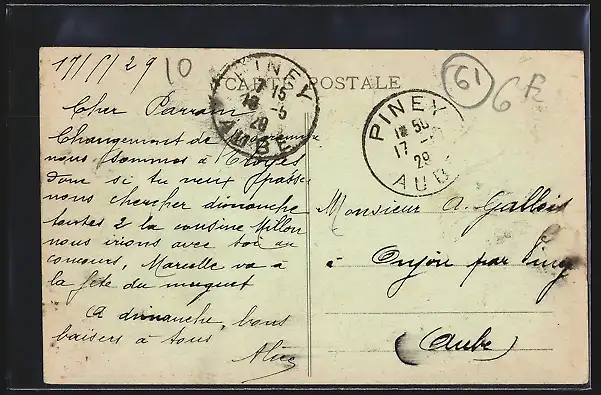 17/5/29
10
CARTE POSTALE
PINEY
17 15
18 -5
29
AUBE
61
6 F
PINEY
18 50
17 -
29
AUB
Cher Parrain
Changement de
nous sommes à Troyes
donc si tu veux passer
nous chercher dimanche
toutes 2 la cousine Villon
nous irions avec toi au
concours, Marcelle va à
la fête du muguet
A dimanche, bons
baisers à tous
Alice
Monsieur A. Gallois
à Onjon par Piney
(Aube)